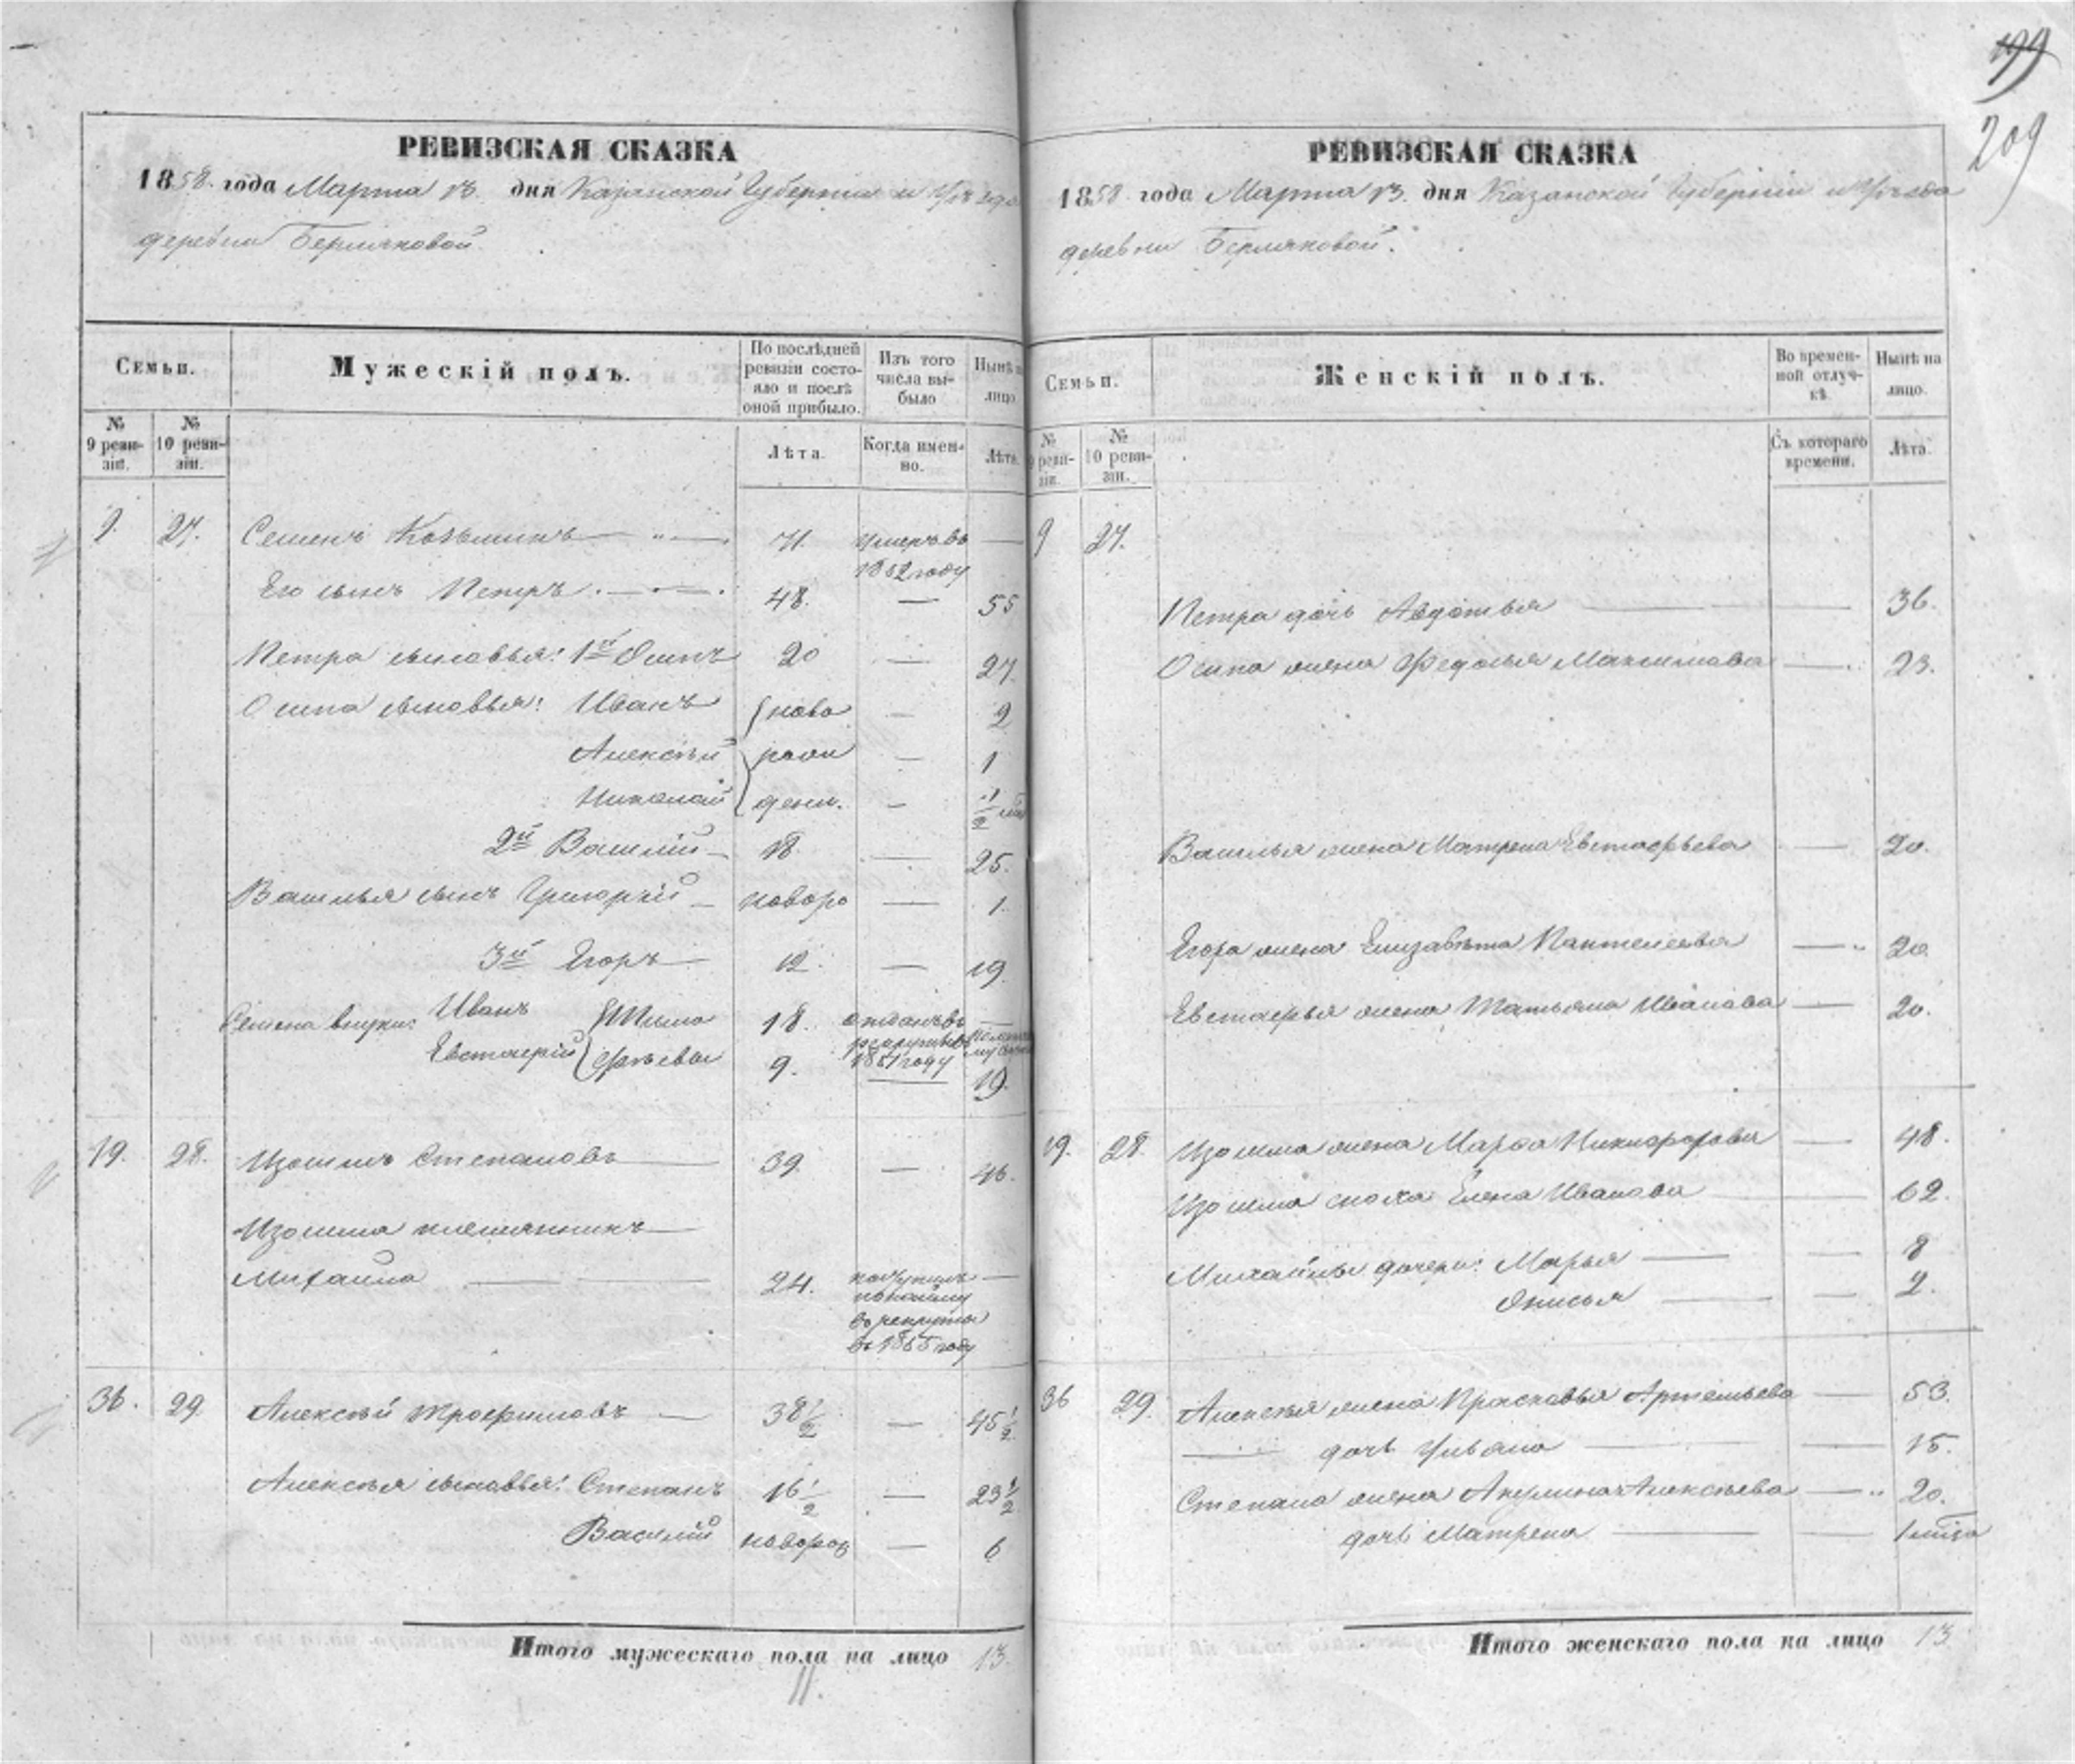 199
209
РЕВИЗСКАЯ СКАЗКА
1858 года Марта 13 дня Казанской Губернии и Уѣзда
деревни Бермяковой.
Семьи.
Мужескій полъ.
По послѣдней ревизіи состояло и послѣ оной прибыло.
Изъ того числа выбыло
Нынѣ на лицо
№ 9 ревизіи.
№ 10 ревизіи.
Лѣта.
Когда именно.
Лѣта.
9. 27. Семенъ Козьминъ 71. умеръ въ 1852 году —
Его сынъ Петръ 48. — 55
Петра сыновья: 1й Осипъ 20 — 27.
Осипа сыновья: Иванъ ново — 2
Алексѣй рож — 1
Николай дены. — 1/2
2й Василій 18 — 25.
Василья сынъ Григорій новоро — 1.
3й Егоръ 12. — 19.
Семена внуки: Иванъ Тимо 18. отданъ въ рекруты въ 1851 году —
Евстафій фѣевы 9. — 19.
19. 28. Изосимъ Степановъ 39. — 46.
Изосима племянникъ
Михаила 24. поступилъ по найму въ рекруты въ 1855 году —
36. 29. Алексѣй Трофимовъ 38 1/2 — 45 1/2
Алексѣя сыновья: Степанъ 16 1/2 — 23 1/2
Василій новорож — 6
Итого мужескаго пола на лицо 13.
11.
РЕВИЗСКАЯ СКАЗКА
1858 года Марта 13. дня Казанской Губерніи и Уѣзда
деревни Бермяковой.
Семьи.
Женскій полъ.
Во временной отлучкѣ.
Нынѣ на лицо.
№ 9 ревизіи.
№ 10 ревизіи.
Съ котораго времени.
Лѣта.
9 27.
Петра дочь Авдотья — 36.
Осипа жена Федосья Максимова — 23.
Василья жена Матрена Евстафьева — 20.
Егора жена Елизавѣта Пантелеева — 20.
Евстафья жена Татьяна Иванова — 20.
19. 28. Изосима жена Марфа Никифорова — 48.
Изосима сноха Елена Иванова — 62.
Михайлы дочери: Марья — 8
Анисья — 2.
36 29. Алексѣя жена Прасковья Артемьева — 53.
— дочь Ульяна — 15.
Степана жена Акулина Алексѣева — 20.
дочь Матрена — 1 мѣся
Итого женскаго пола на лицо 13